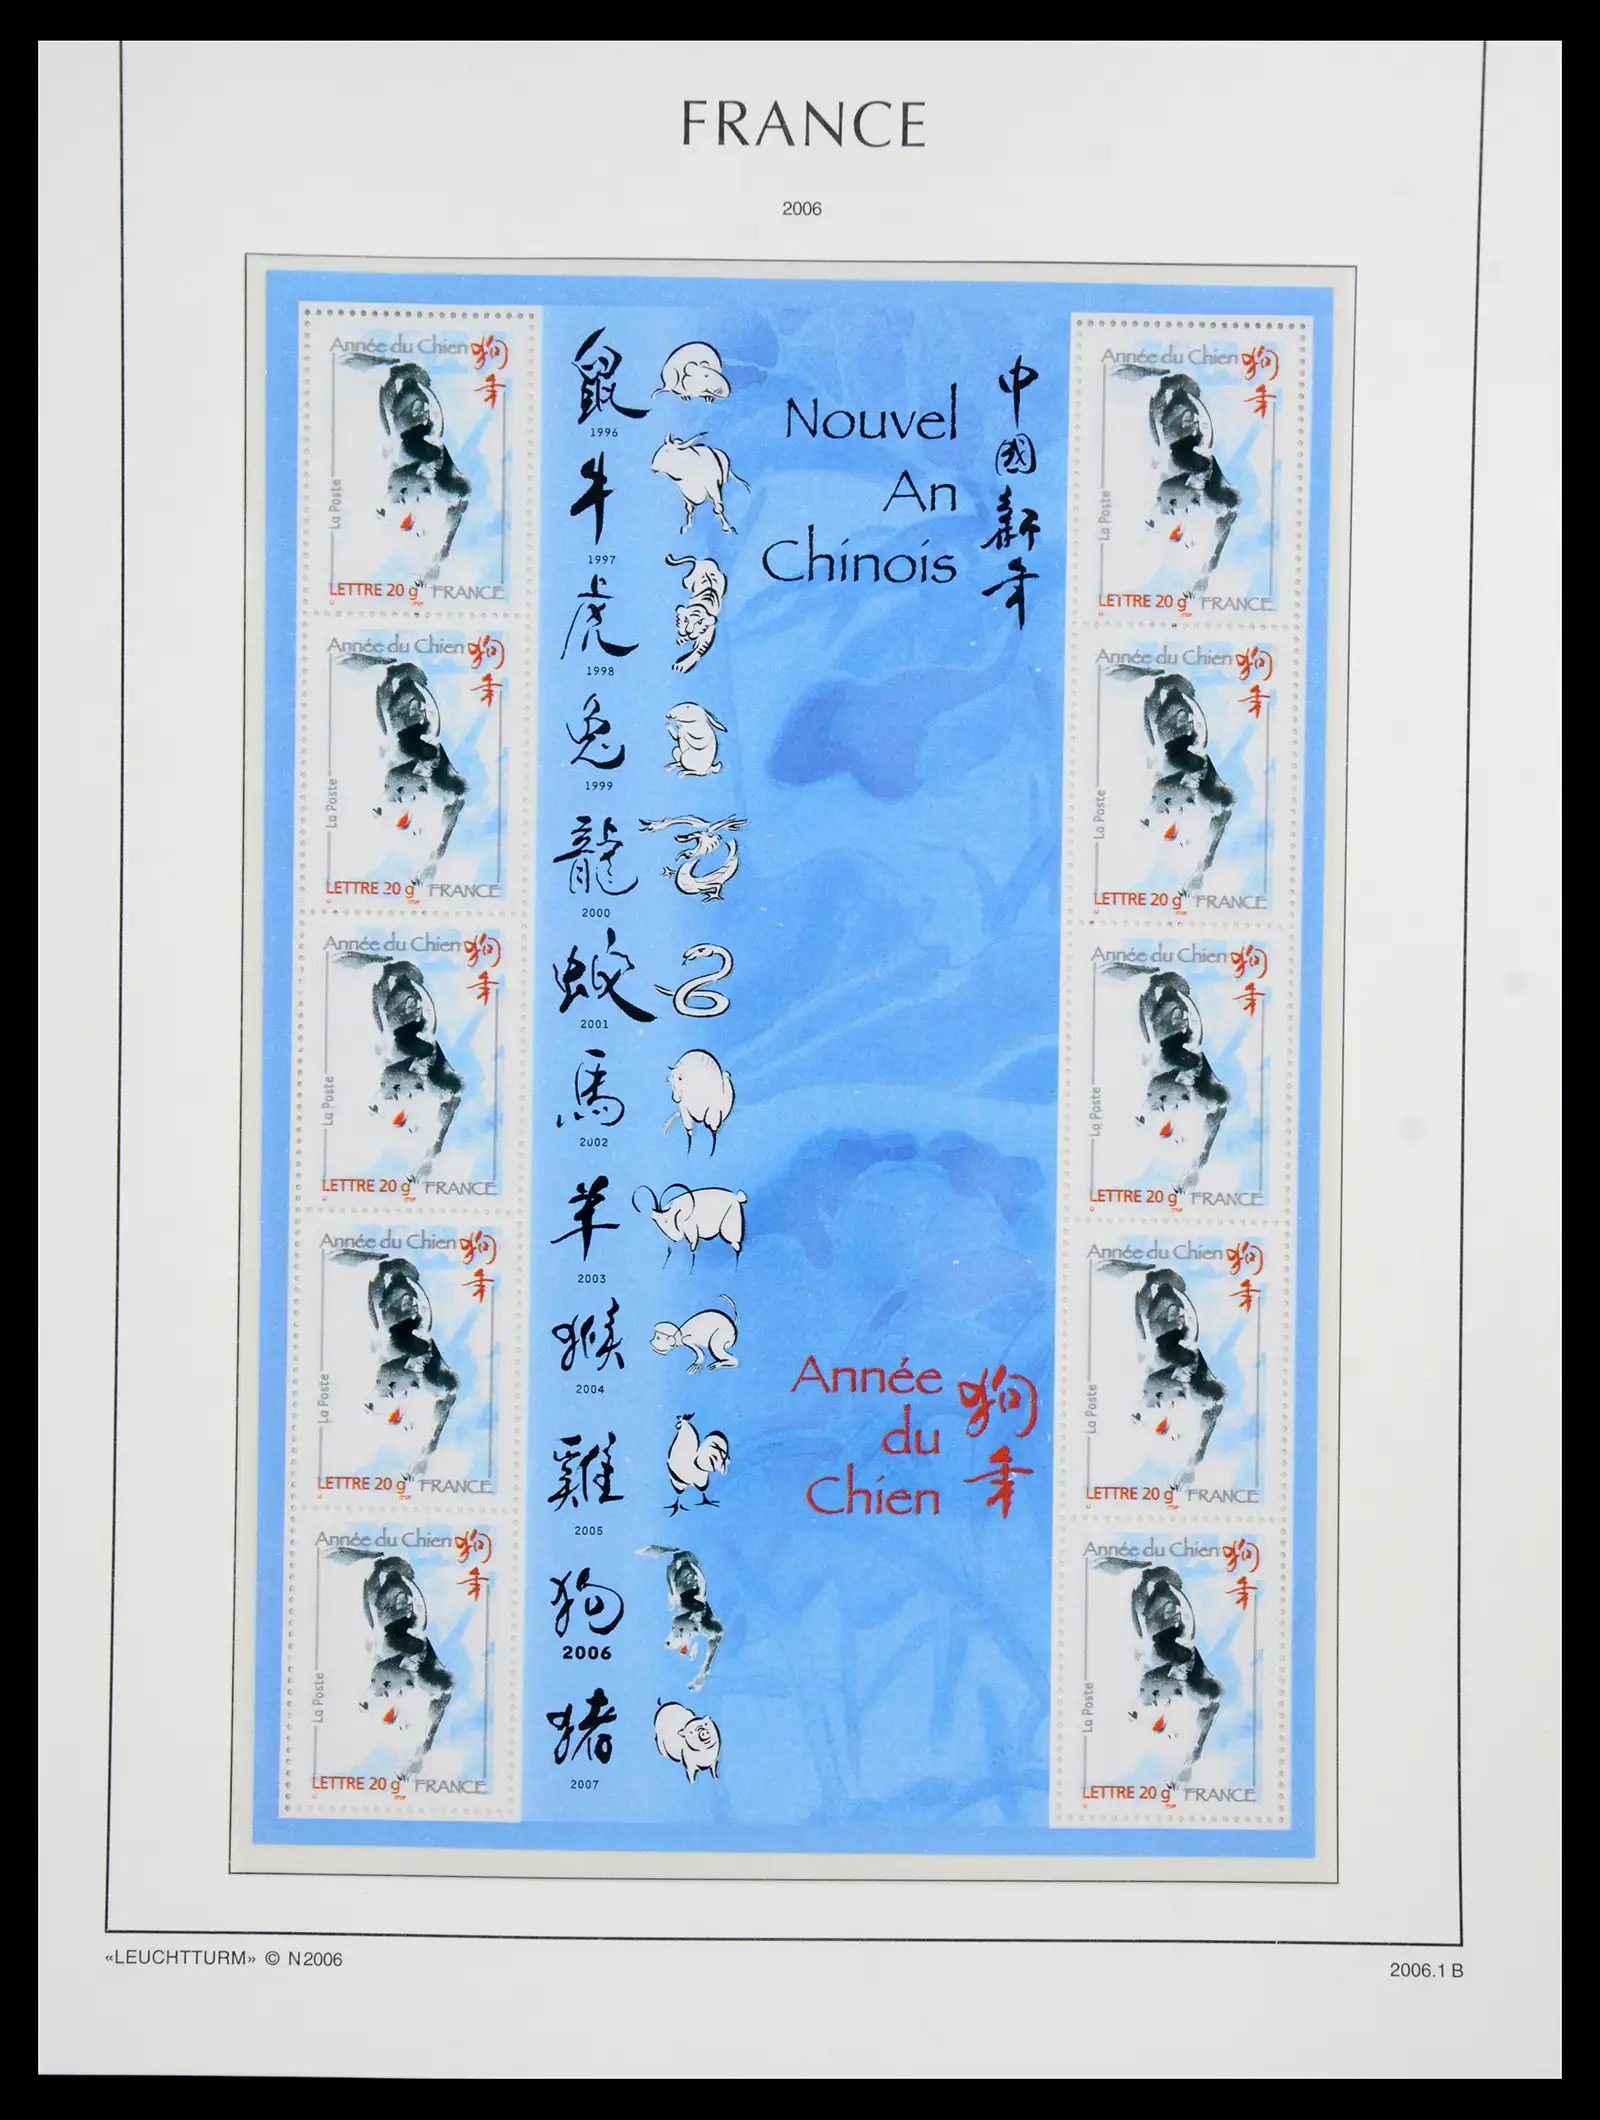 FRANCE
2006
Année du Chien 狗
年
La Poste
LETTRE 20 g FRANCE
Année du Chien 狗
年
La Poste
LETTRE 20 g FRANCE
Année du Chien 狗
年
La Poste
LETTRE 20 g FRANCE
Année du Chien 狗
年
La Poste
LETTRE 20 g FRANCE
Année du Chien 狗
年
La Poste
LETTRE 20 g FRANCE
鼠
1996
牛
1997
虎
1998
兔
1999
龍
2000
2001
馬
2002
羊
2003
猴
2004
雞
2005
狗
2006
猪
2007
Nouvel
An
Chinois
中國新年
Année
du
Chien
狗年
Année du Chien 狗
年
La Poste
LETTRE 20 g FRANCE
Année du Chien 狗
年
La Poste
LETTRE 20 g FRANCE
Année du Chien 狗
年
La Poste
LETTRE 20 g FRANCE
Année du Chien 狗
年
La Poste
LETTRE 20 g FRANCE
Année du Chien 狗
年
La Poste
LETTRE 20 g FRANCE
«LEUCHTTURM» © N2006
2006.1 B